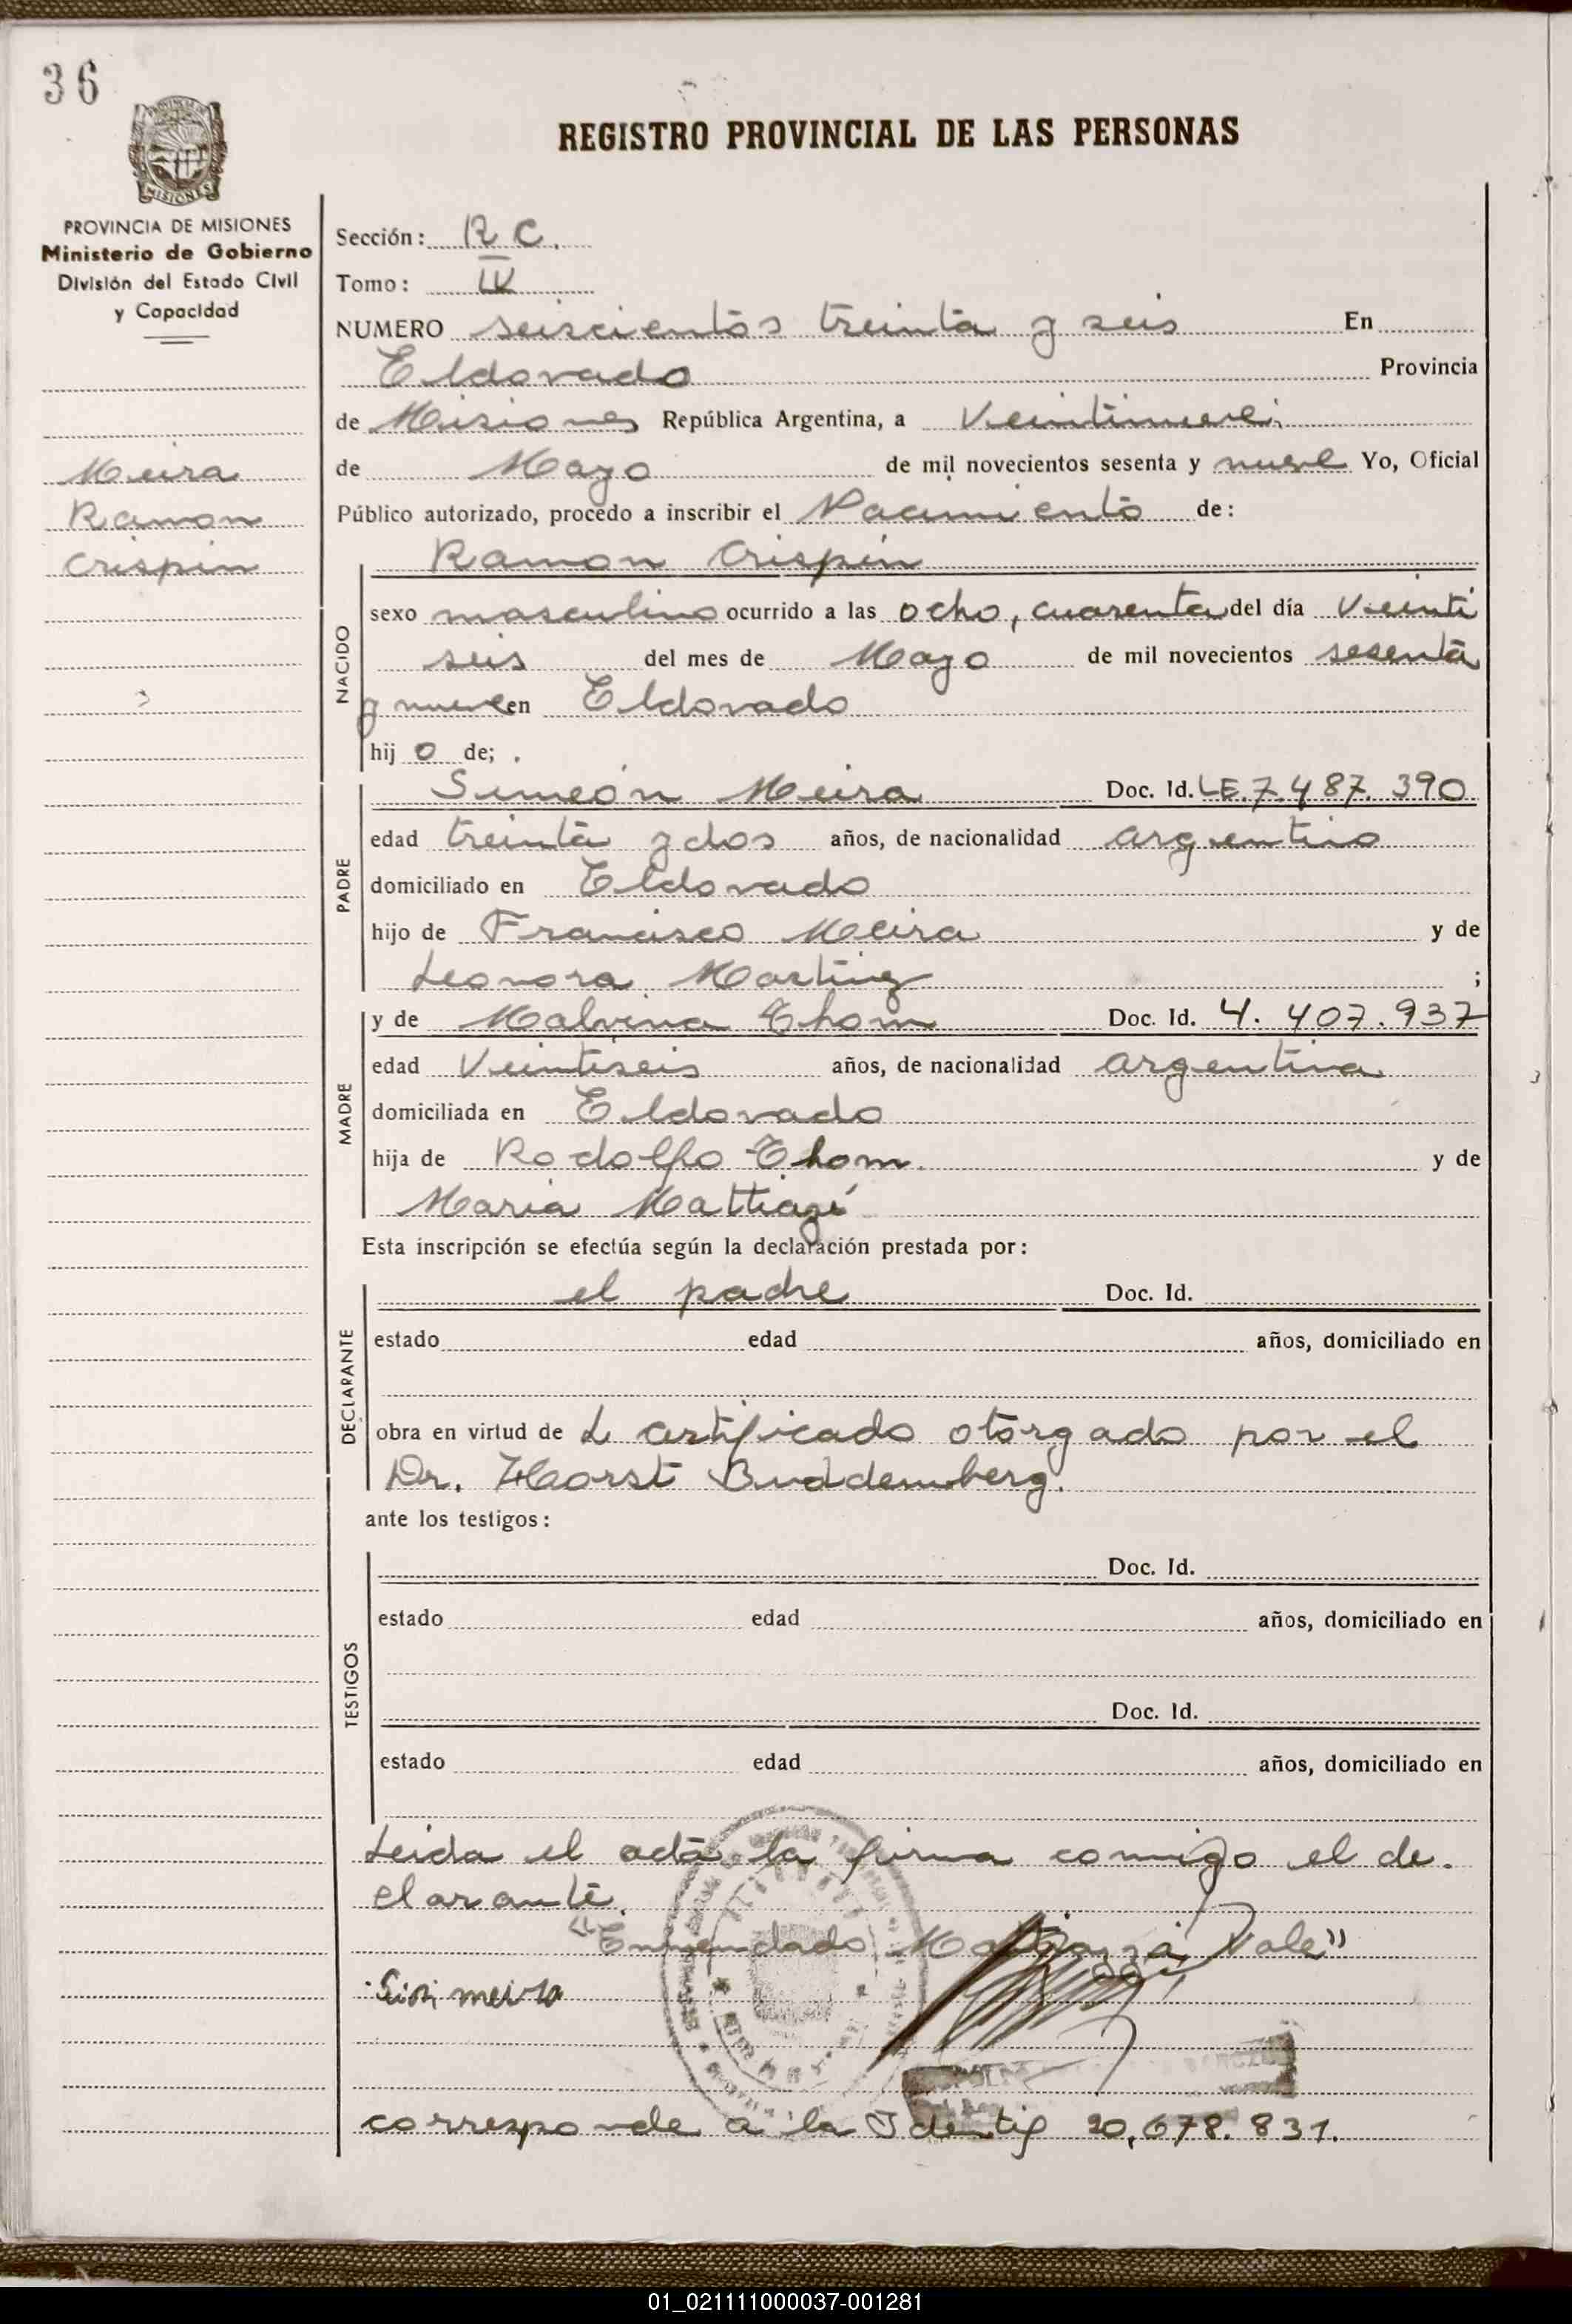 36
REGISTRO PROVINCIAL DE LAS PERSONAS
MISIONES
PROVINCIA DE MISIONES
Ministerio de Gobierno
División del Estado Civil
y Capacidad
Meira
Ramon
Crispin
Sección: R C.
Tomo: IV
NUMERO seiscientos treinta y seis En
Eldorado Provincia
de Misiones República Argentina, a Veintinueve
de Mayo de mil novecientos sesenta y nueve Yo, Oficial
Público autorizado, procedo a inscribir el Nacimiento de:
Ramon Crispin
NACIDO
sexo masculino ocurrido a las ocho, cuarenta del día Veinti
seis del mes de Mayo de mil novecientos sesenta
y nueve en Eldorado
hij o de;
PADRE
Simeón Meira Doc. Id. LE. 7.487.390
edad treinta y dos años, de nacionalidad argentino
domiciliado en Eldorado
hijo de Francisco Meira y de
Leonora Martinez ;
MADRE
y de Malvina Thom Doc. Id. 4.407.937
edad Veintiseis años, de nacionalidad argentina
domiciliada en Eldorado
hija de Rodolfo Thom. y de
Maria
Esta inscripción se efectúa según la declaración prestada por:
DECLARANTE
el padre Doc. Id.
estado edad años, domiciliado en
obra en virtud de L certificado otorgado por el
Dr. Horst Buddemberg.
ante los testigos:
TESTIGOS
Doc. Id.
estado edad años, domiciliado en
Doc. Id.
estado edad años, domiciliado en
Leida el acta la firma conmigo el de.
clarante.
"Enmendado Vale"
meira
corresponde a la Identif 20,678.831.
01_021111000037-001281